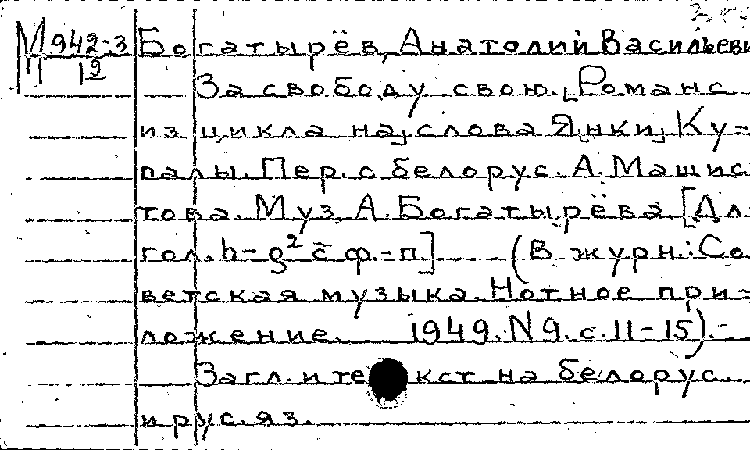 М 942-3 Богатырёв, Анатолий Васильеви
П 12
За свободу свою. [Романс
из цикла на] слова Янки, Ку=
палы. Пер. с белорус. А. Машис
това. Муз. А. Богатырёва [Дл
гол. h-g² с ф.-п] (В журн.: Со
ветская музыка. Нотное при-
ложение. 1949. N 9. с. 11-15).-
Загл. и текст на белорус.
и рус. яз.